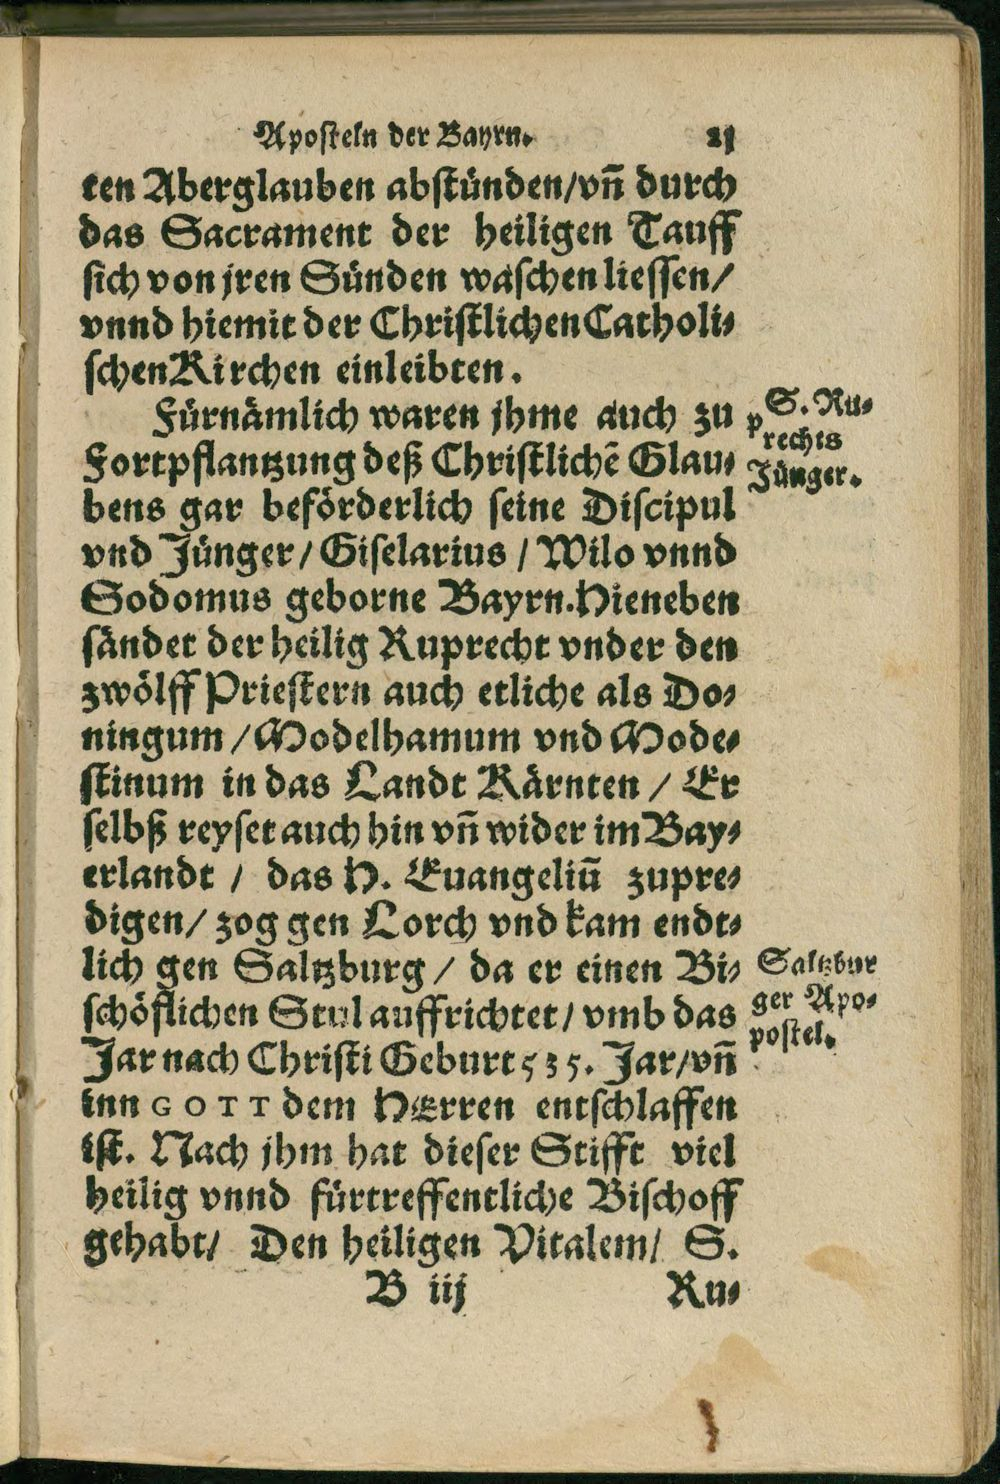 Aposteln der Bayrn. 21
ten Aberglauben abstünden/vñ durch
das Sacrament der heiligen Tauff
sich von jren Sünden waschen liessen/
vnnd hiemit der Christlichen Catholi-
schen Kirchen einleibten.
Fürnämlich waren jhme auch zu
Fortpflantzung deß Christlichẽ Glau-
bens gar beförderlich seine Discipul
vnd Jünger/Giselarius/Wilo vnnd
Sodomus geborne Bayrn. Hieneben
sändet der heilig Ruprecht vnder den
zwölff Priestern auch etliche als Do-
ningum/Modelhamum vnd Mode-
stinum in das Landt Kärnten/Er
selbß reyset auch hin vñ wider im Bay-
erlandt/das H. Euangeliũ zupre-
digen/zog gen Lorch vnd kam endt-
lich gen Saltzburg/da er einen Bi-
schöflichen Stul auffrichtet/vmb das
Jar nach Christi Geburt 535. Jar/vñ
inn GOTT dem HErren entschlaffen
ist. Nach jhm hat dieser Stifft viel
heilig vnnd fürtreffentliche Bischoff
gehabt/Den heiligen Vitalem/S.
B iij Ru-
S. Ru-
prechts
Jünger.
Saltzbur
ger Apo-
postel.